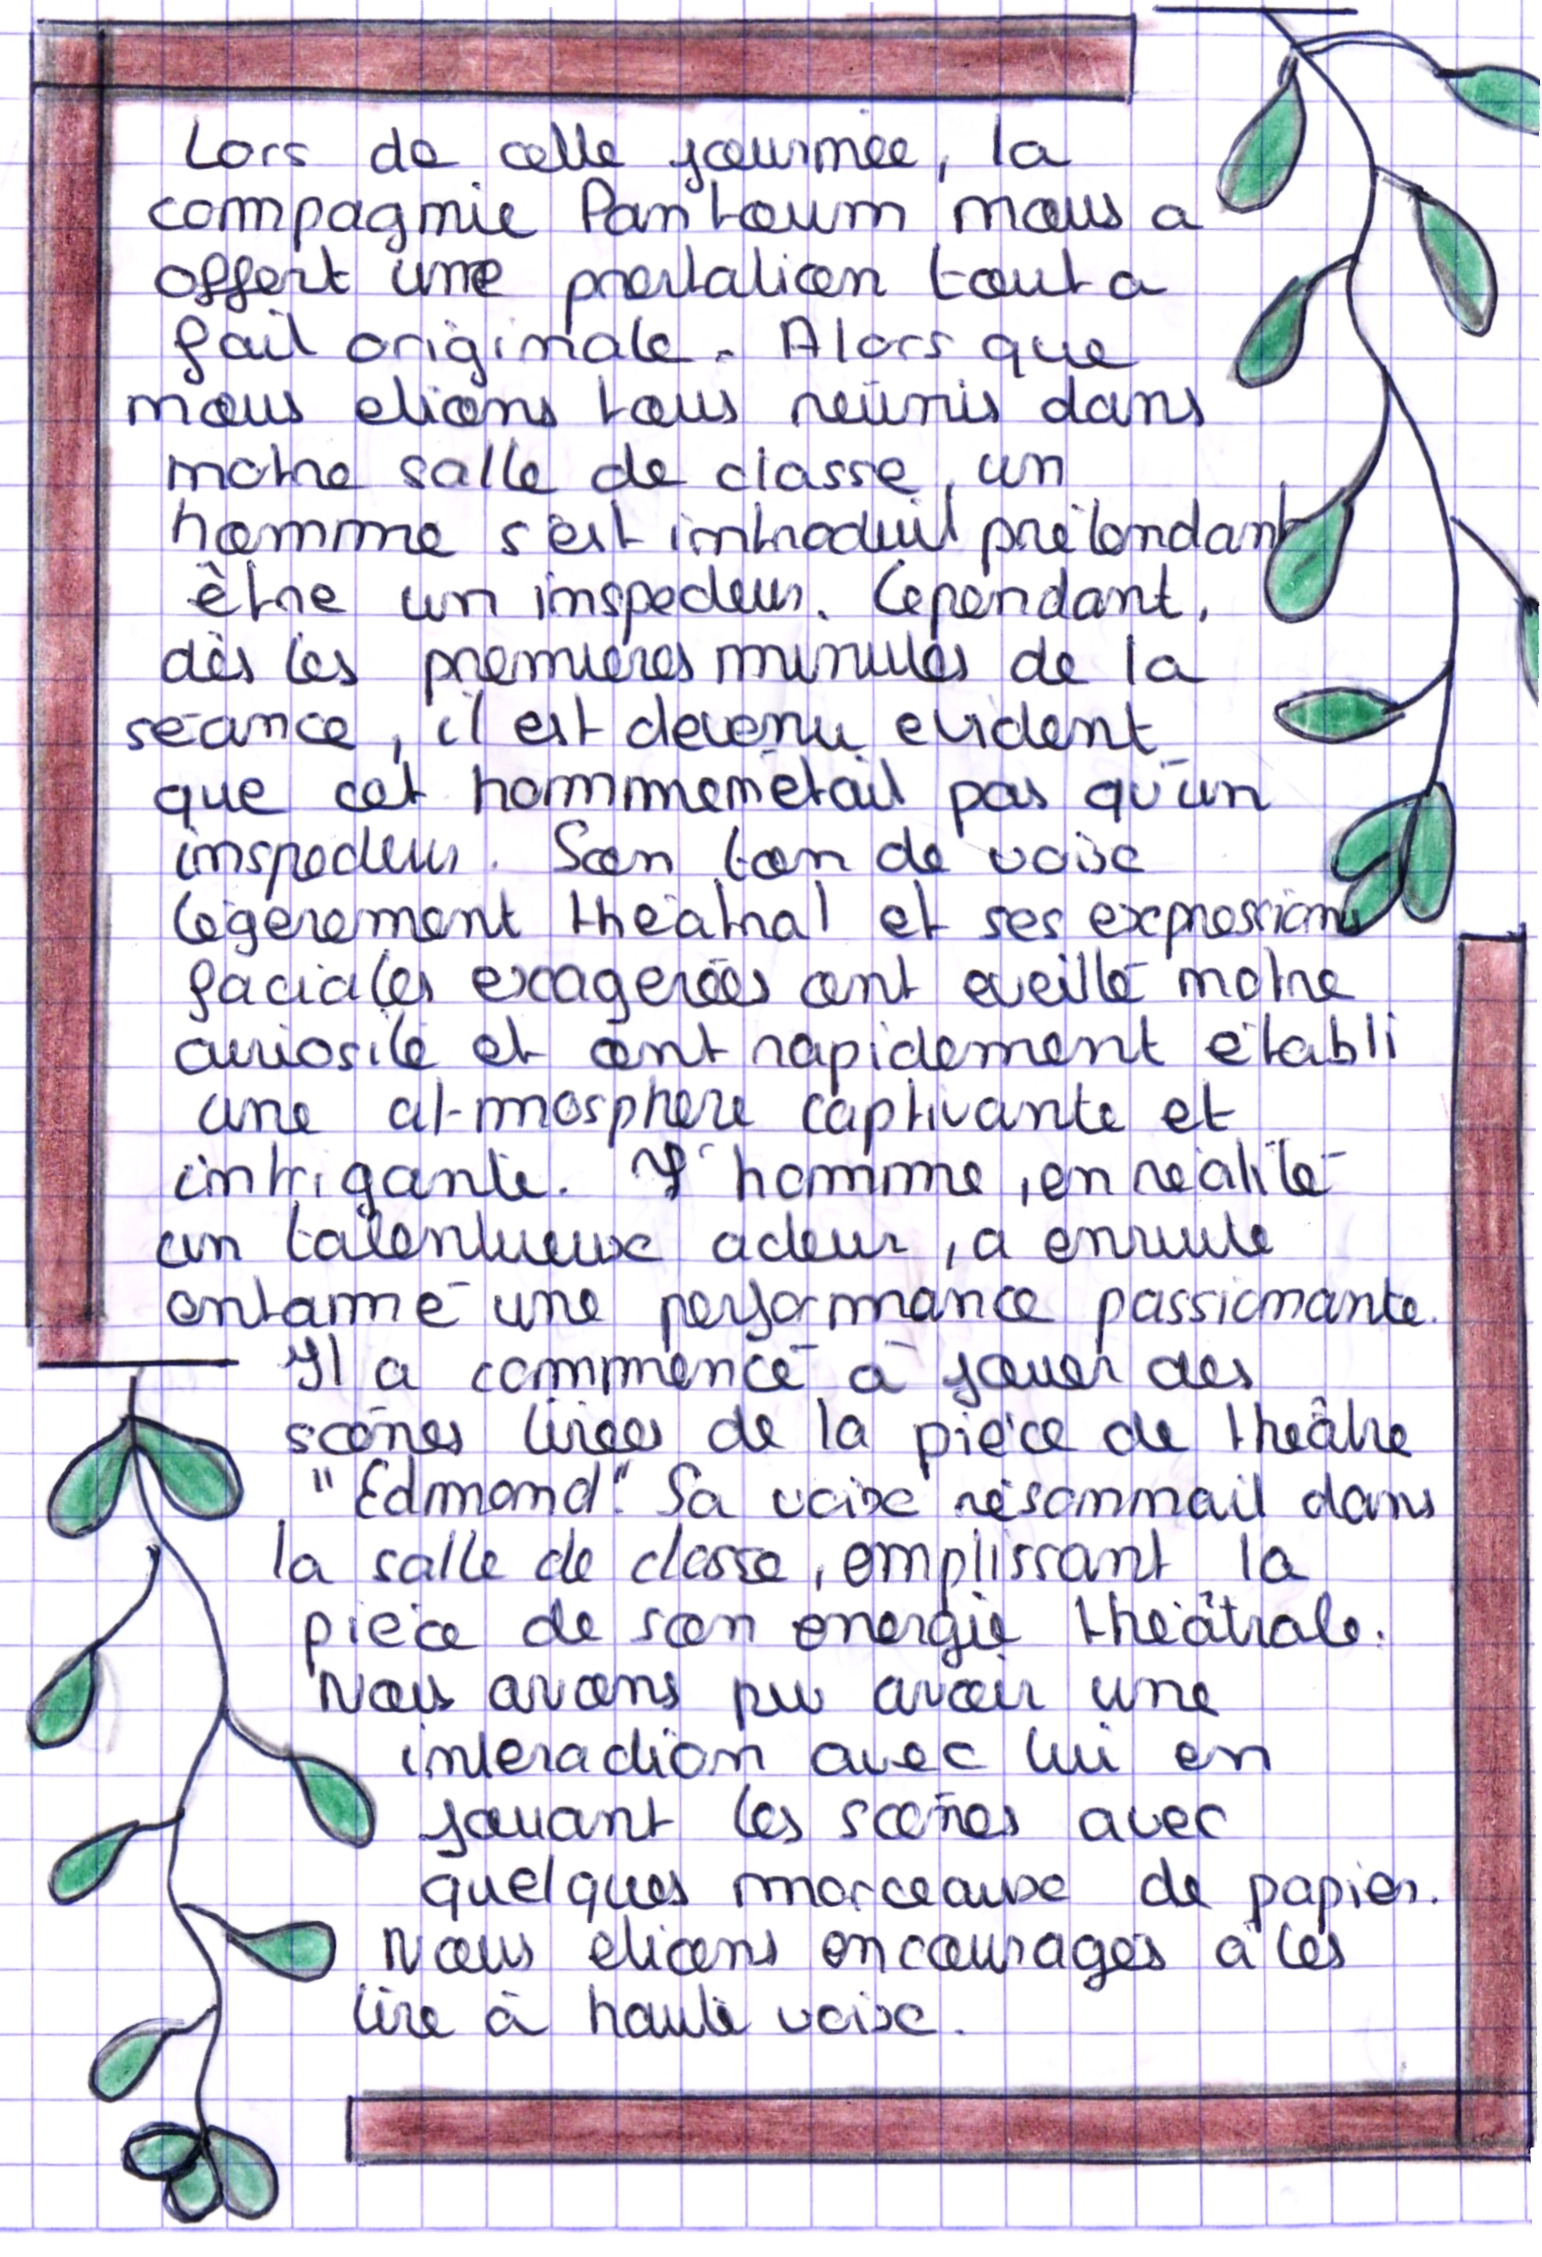 Lors de cette journée, la
compagnie Pantoum nous a
offert une prestation tout a
fait originale. Alors que
nous etions tous réunis dans
notre salle de classe, un
homme s'est introduit prétendant
être un inspecteur. Cependant,
dès les premières minutes de la
séance, il est devenu evident
que cet homme n'etait pas qu'un
inspecteur. Son ton de voix
légèrement théâtral et ses expressions
faciales exagérées ont eveillé notre
curiosité et ont rapidement établi
une atmosphere captivante et
intrigante. L'homme, en réalité
un talentueux acteur, a ensuite
entamé une performance passionante.
Il a commencé à jouer des
scènes tirées de la pièce de theâtre
"Edmond". Sa voix résonnait dans
la salle de classe, emplissant la
pièce de son énergie théâtrale.
Nous avons pu avoir une
interaction avec lui en
jouant les scènes avec
quelques morceaux de papier.
Nous etions encouragés à les
lire à haute voix.